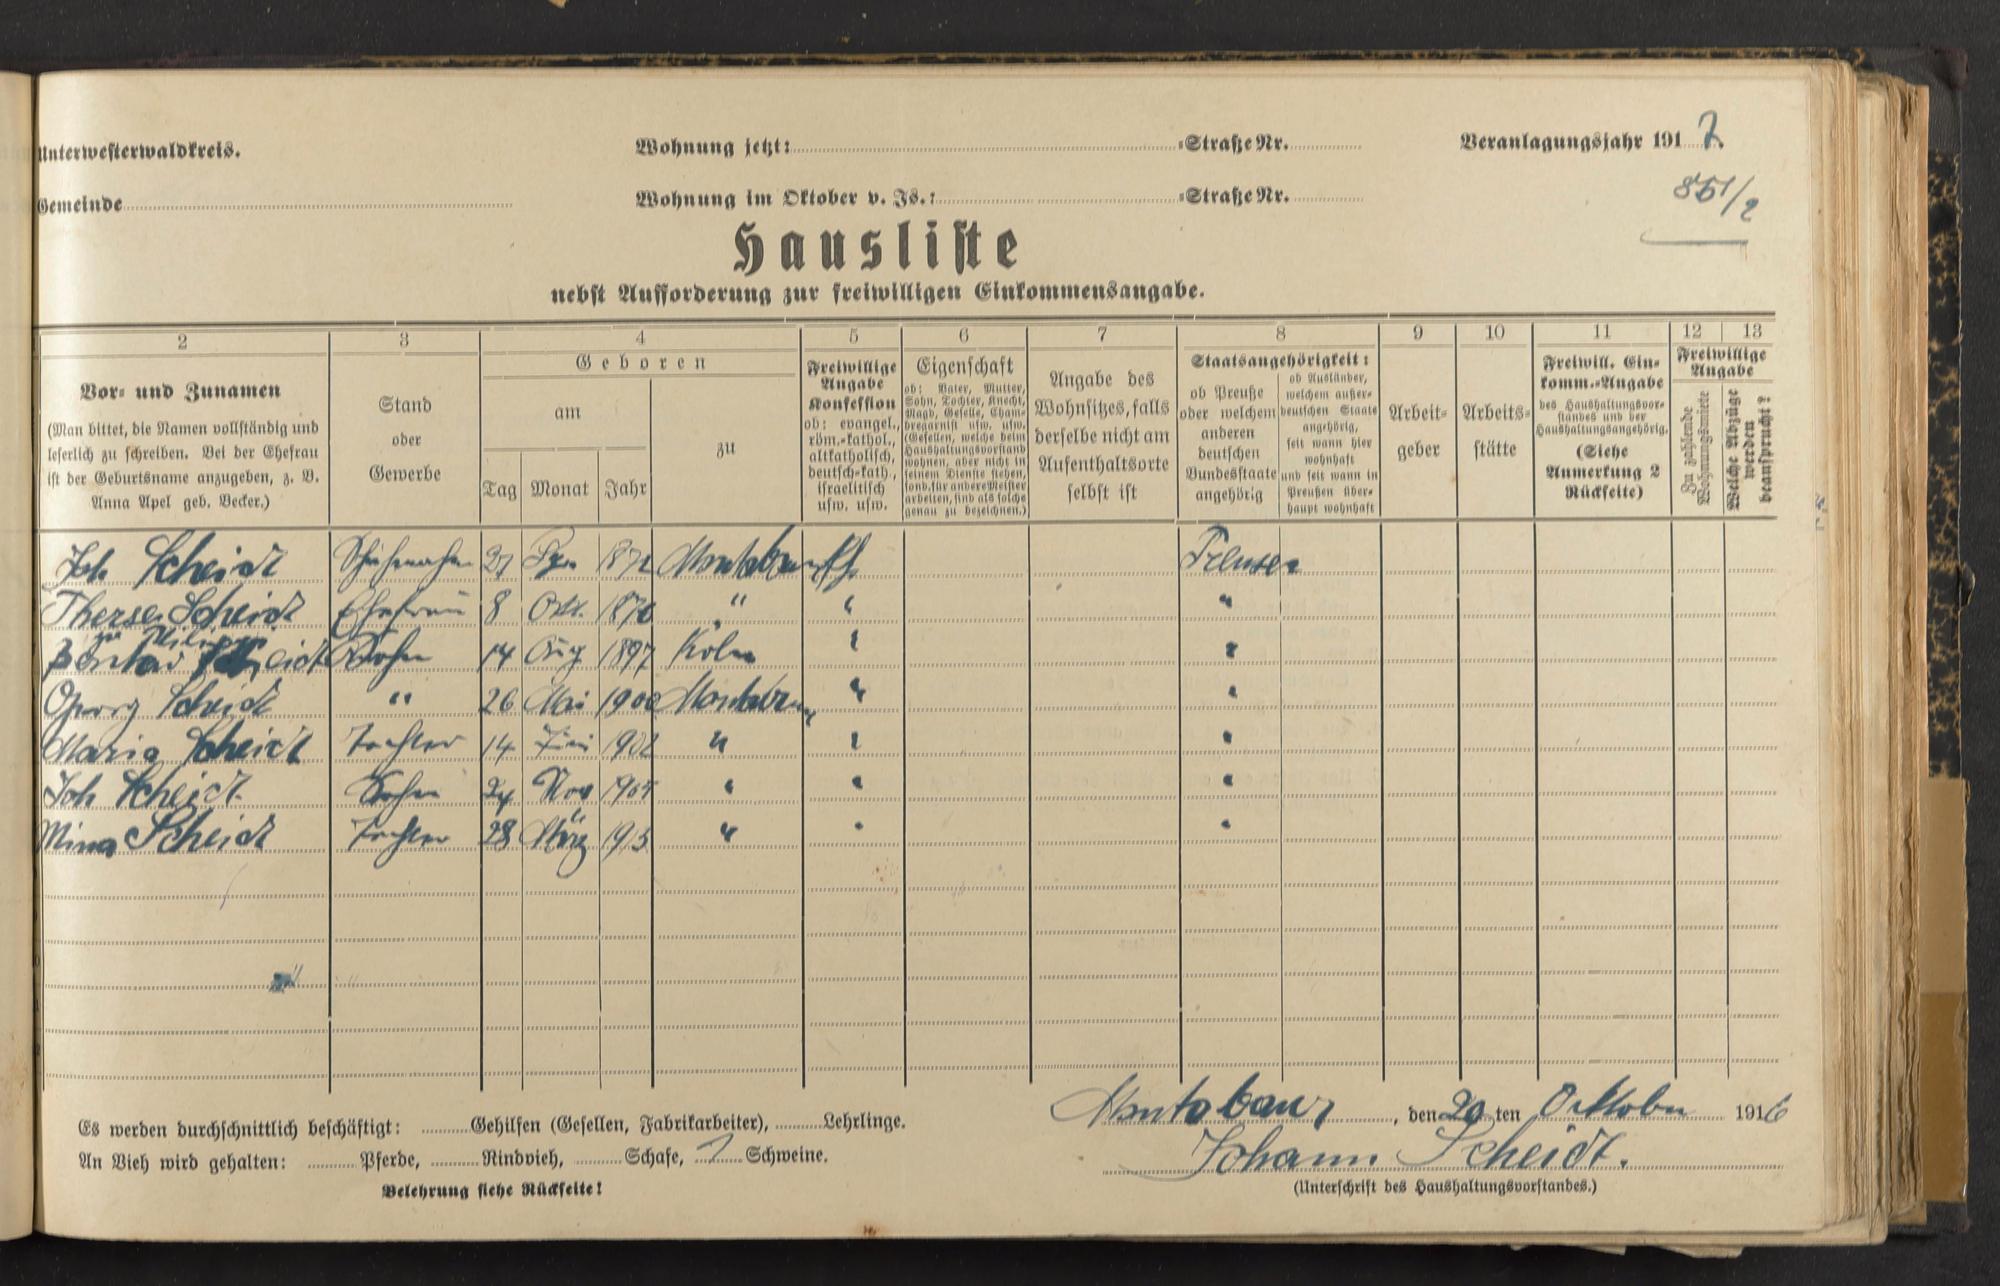 Unterwesterwaldkreis. Wohnung jetzt: =Straße Nr. Veranlagungsjahr 1917.
Gemeinde Wohnung im Oktober v. Js.: =Straße Nr. 851/2
Hausliste
nebst Aufforderung zur freiwilligen Einkommensangabe.
2 3 4 5 6 7 8 9 10 11 12 13
Vor= und Zunamen
(Man bittet, die Namen vollständig und
leserlich zu schreiben. Bei der Ehefrau
ist der Geburtsname anzugeben, z. B.
Anna Apel geb. Becker.)
Stand
oder
Gewerbe
Geboren
am
Tag Monat Jahr
zu
Freiwillige
Angabe
Konfession
ob: evangel.,
röm.=kathol.,
altkatholisch,
deutsch=kath.,
israelitisch
usw. usw.
Eigenschaft
ob: Vater, Mutter,
Sohn, Tochter, Knecht,
Magd, Geselle, Cham=
bregarnist usw. usw.
(Gesellen, welche beim
Haushaltungsvorstand
wohnen, aber nicht in
seinem Dienste stehen,
sond. für andere Meister
arbeiten, sind als solche
genau zu bezeichnen.)
Angabe des
Wohnsitzes, falls
derselbe nicht am
Aufenthaltsorte
selbst ist
Staatsangehörigkeit:
ob Preuße
oder welchem
anderen
deutschen
Bundesstaate
angehörig
ob Ausländer,
welchem außer=
deutschen Staate
angehörig,
seit wann hier
wohnhaft
und seit wann in
Preußen über=
haupt wohnhaft
Arbeit=
geber
Arbeits=
stätte
Freiwill. Ein=
komm.=Angabe
des Haushaltungsvor=
standes und der
Haushaltungsangehörig.
(Siehe
Anmerkung 2
Rückseite)
Freiwillige
Angabe
Zu zahlende
Wohnungsmiete
Welche Abzüge
werden
beansprucht?
Joh Scheidt 27 1872 Montabaur Preusen
Therse Scheidt Ehefrau 8 Okt. 1870 " " "
Scheidt Sohn 14 Aug 1897 Köln " "
Georg Scheidt " 26 Mai 1900 Montabaur " "
Maria Scheidt Tochter 14 Juni 1902 " " "
Joh Scheidt Sohn 24 Nov 1905 " " "
Mina Scheidt Tochter 28 März 1913 " " "
Montabaur, den 20 ten Oktober 1916
Es werden durchschnittlich beschäftigt: Gehilfen (Gesellen, Fabrikarbeiter), Lehrlinge.
Johann Scheidt.
An Vieh wird gehalten: Pferde, Rindvieh, Schafe, 1 Schweine.
(Unterschrift des Haushaltungsvorstandes.)
Belehrung siehe Rückseite!